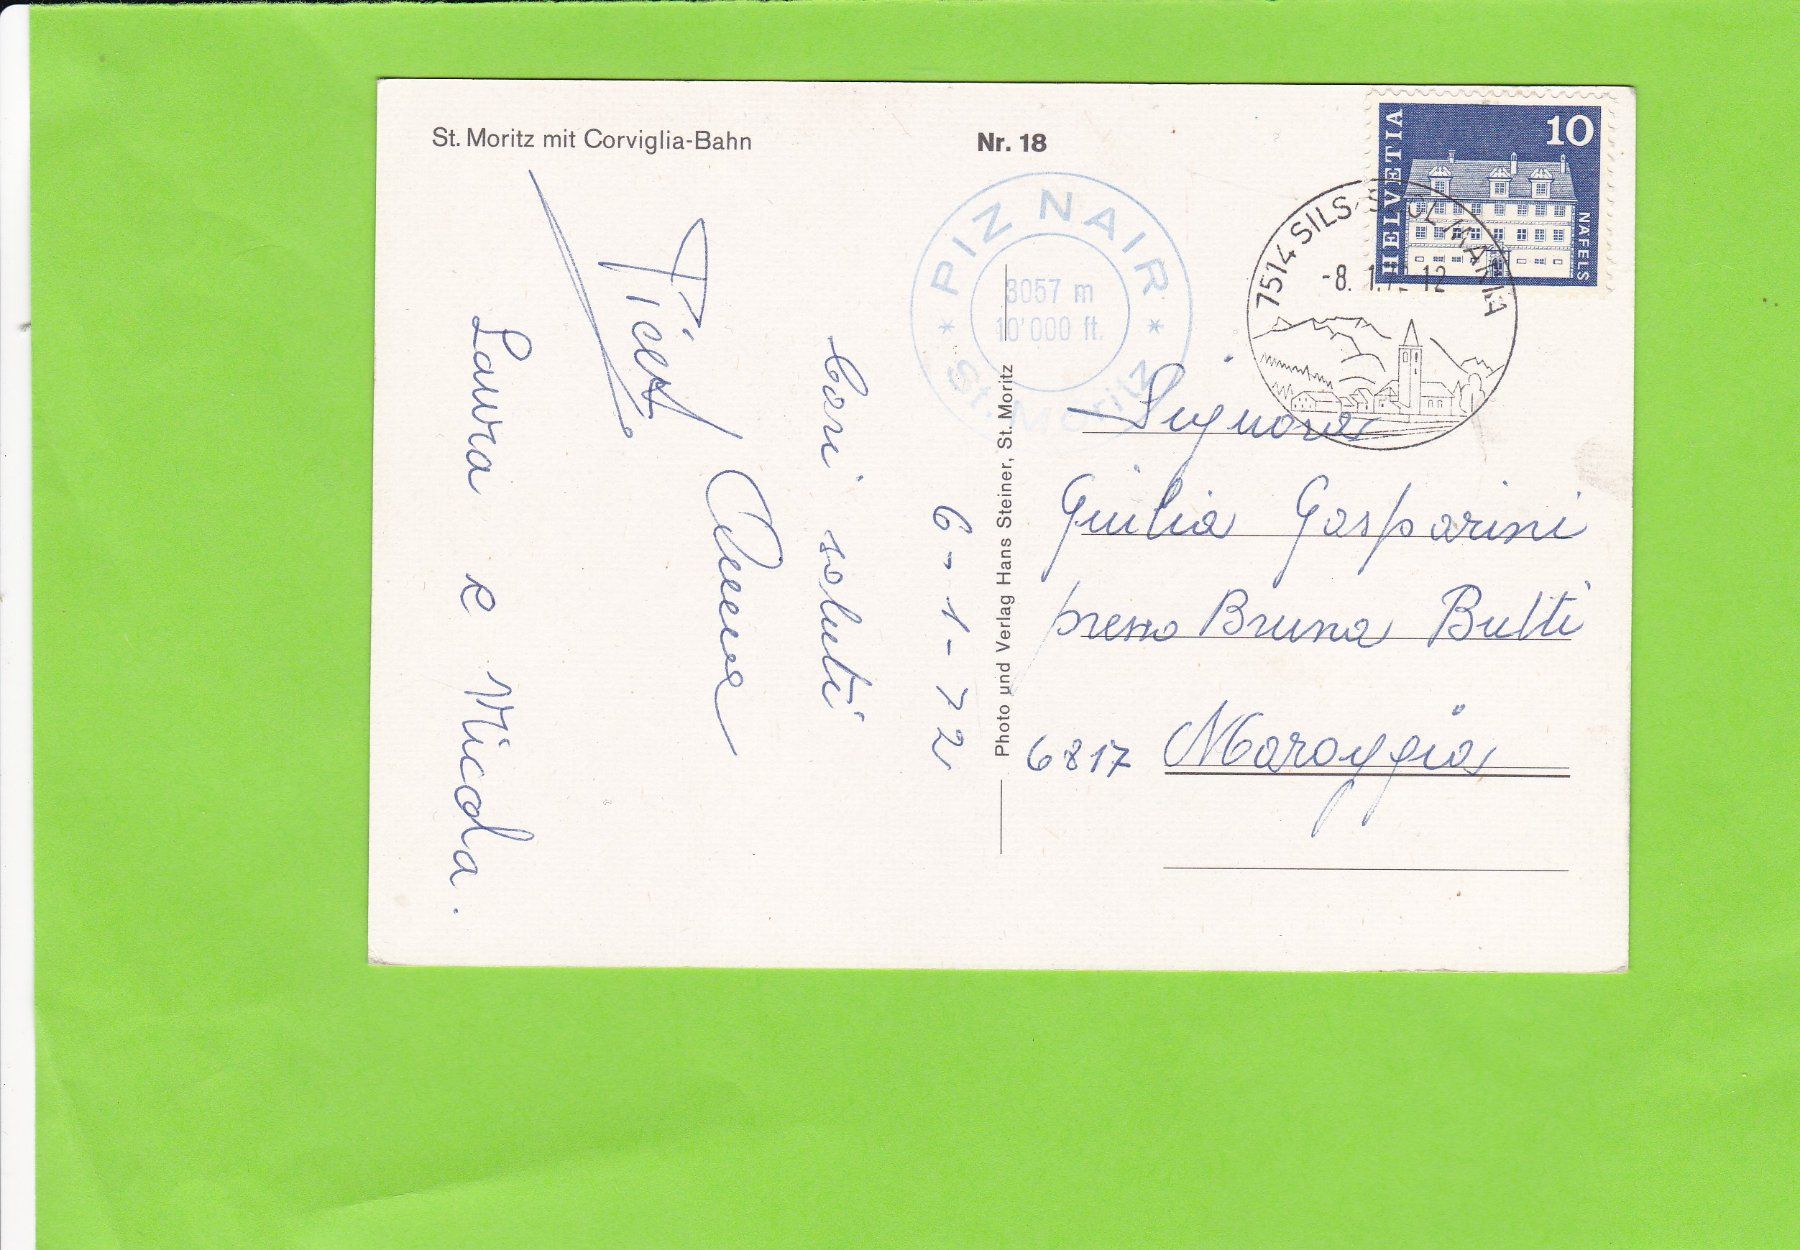 St. Moritz mit Corviglia-Bahn
Nr. 18
HELVETIA
10
NÄFELS
7514 SILS/SEGL MARIA
-8. 1.7 -12
PIZ NAIR
3057 m
10'000 ft.
* St. Moritz *
Photo und Verlag Hans Steiner, St. Moritz
6-1-72
Cari saluti
Laura e Nicola.
Signora
Giulia Gasparini
presso Bruna Butti
6817 Maroggia